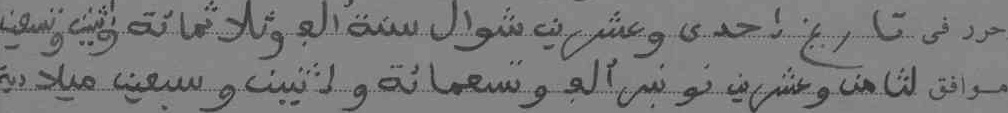 حرر فى تاريخ إحدى وعشرين شوال سنة ألف وثلاثمائة وإثنين وتسعين
موافق لثامن وعشرين نونبر ألف وتسعمائة وإثنين وسبعين ميلادية